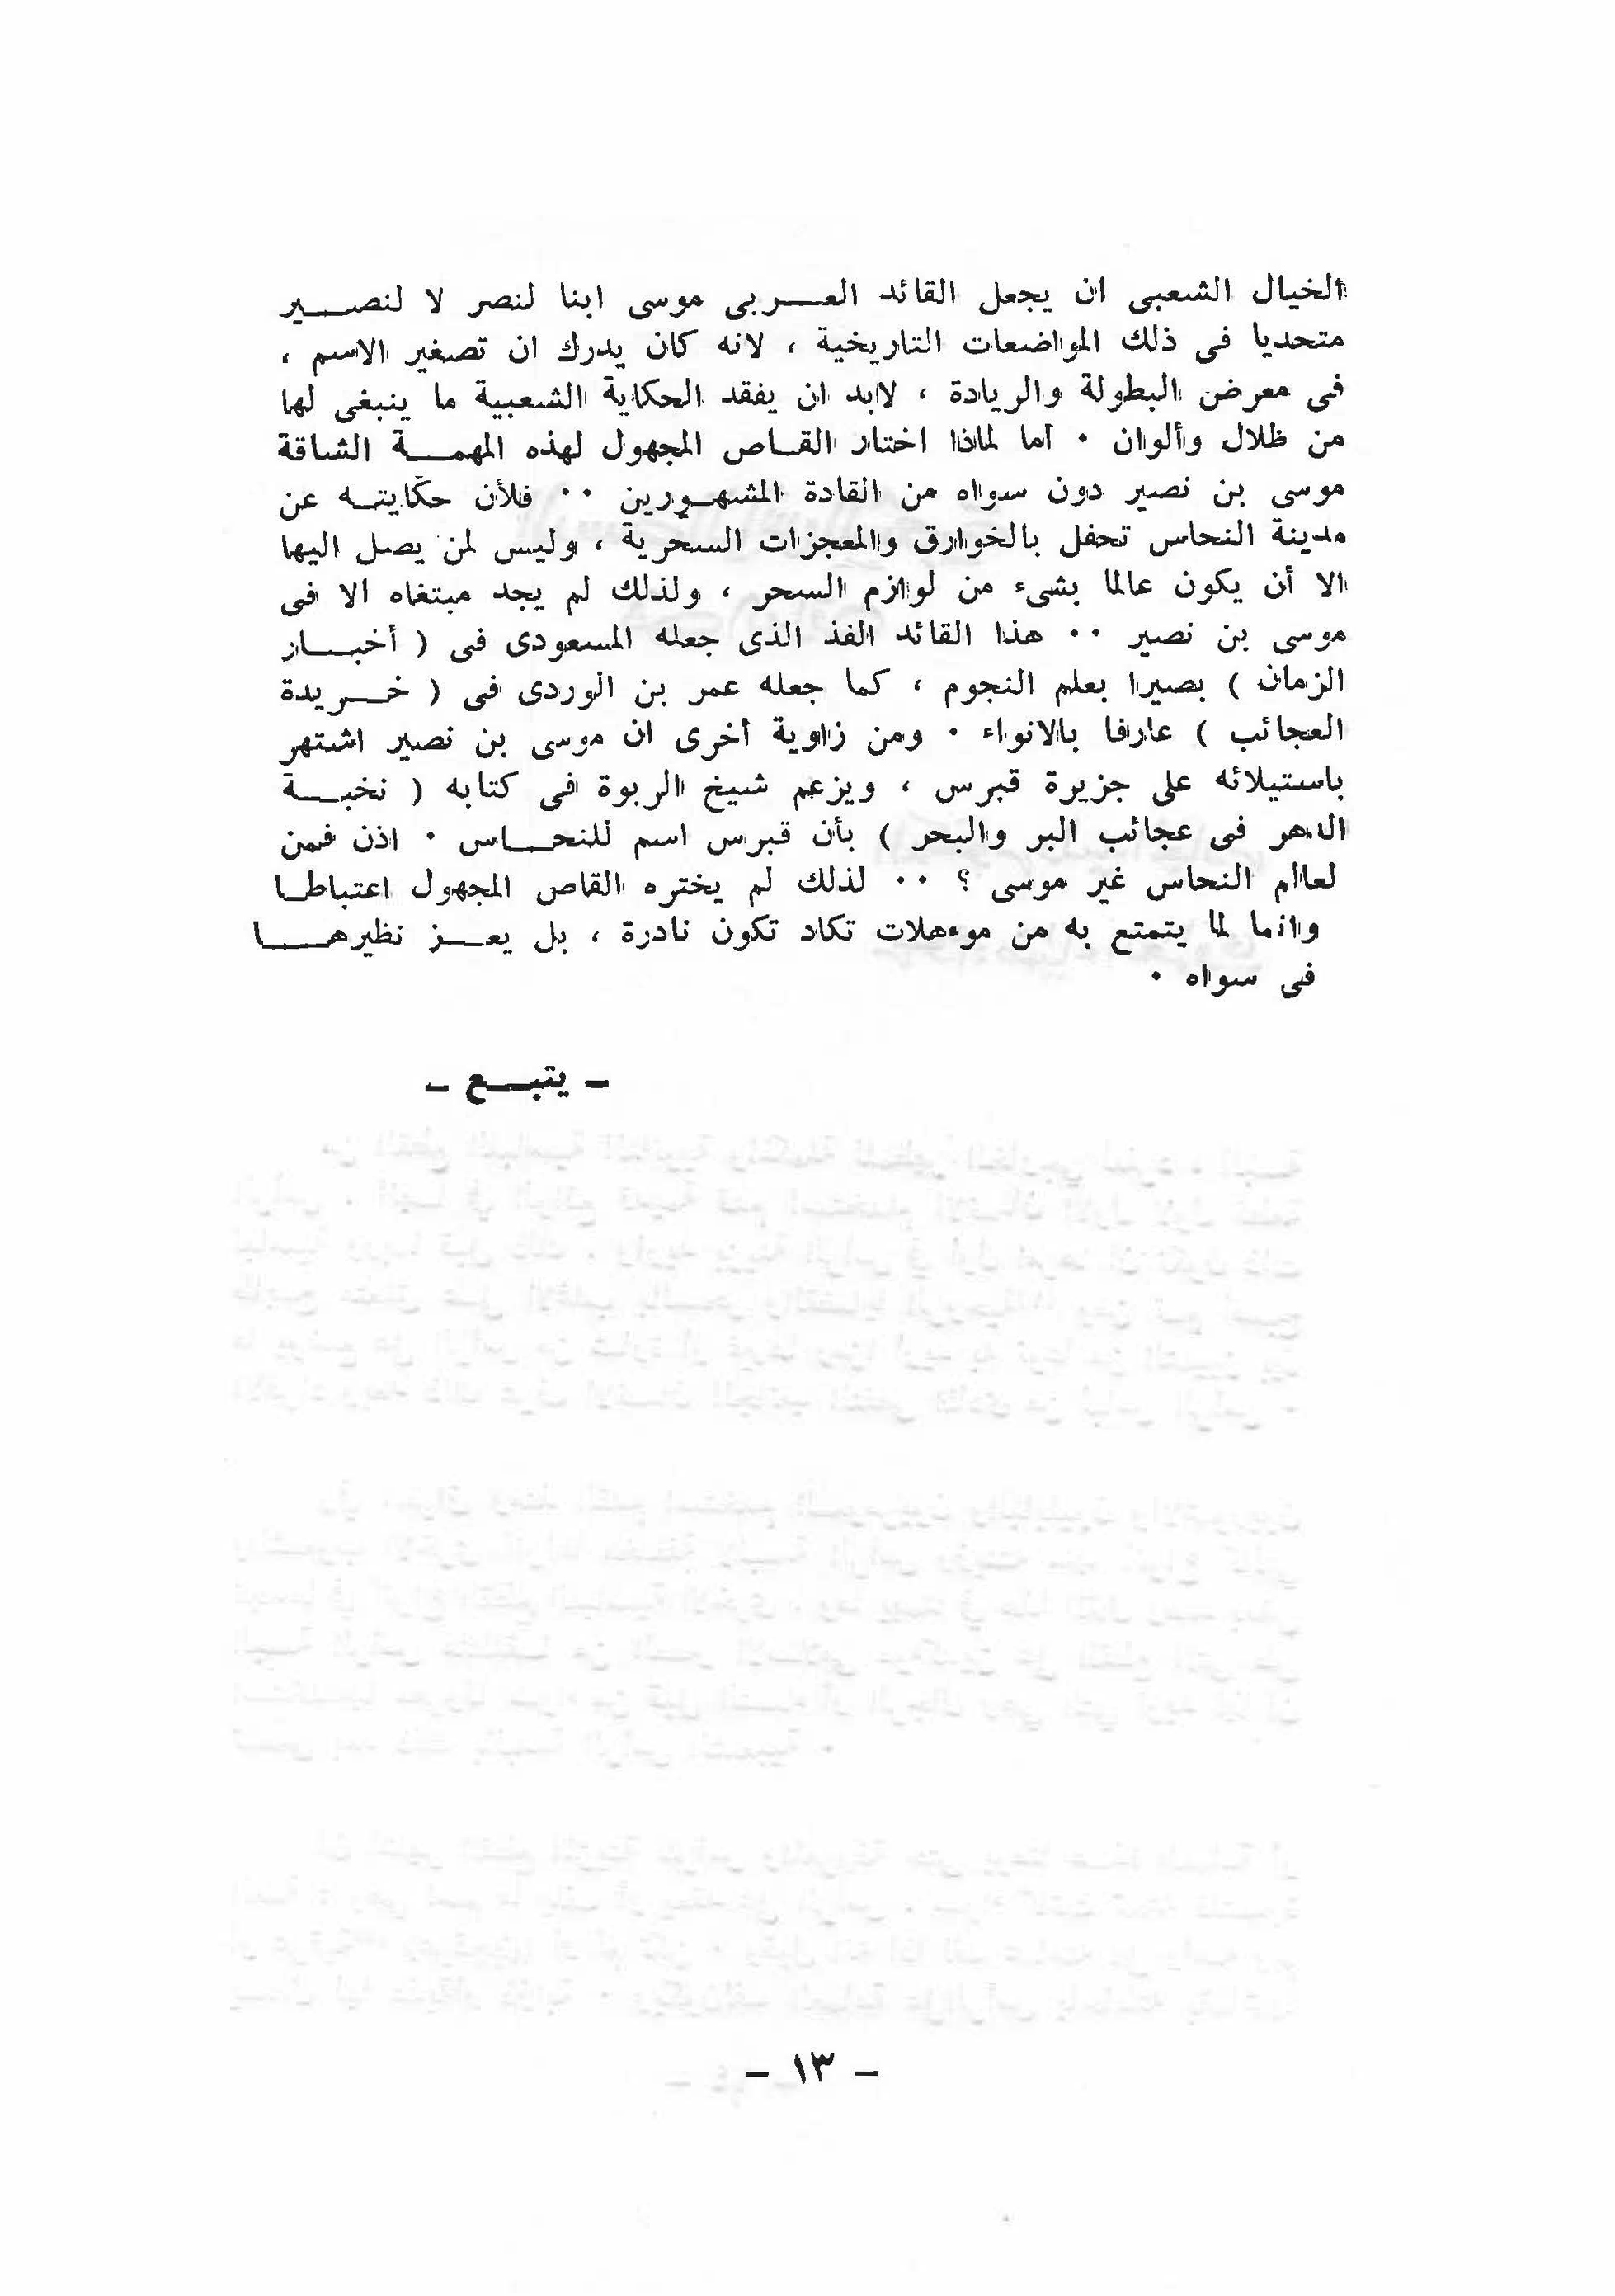 الخيال الشعبى ان يجعل القائد العربى موسى ابنا لنصر لا لنصير
متحديا فى ذلك المواضعات التاريخية ، لانه كان يدرك ان تصغير الاسم ،
فى معرض البطولة والريادة ، لابد ان يفقد الحكاية الشعبية ما ينبغى لها
من ظلال وألوان ٠ اما لماذا اختار القاص المجهول لهذه المهمة الشاقة
موسى بن نصير دون سواه من القادة المشهورين ٠٠ فلأن حكايته عن
مدينة النحاس تحفل بالخوارق والمعجزات السحرية ، وليس لمن يصل اليها
الا أن يكون عالما بشىء من لوازم السحر ، ولذلك لم يجد مبتغاه الا فى
موسى بن نصير ٠٠ هذا القائد الفذ الذى جعله المسعودى فى ( أخبار
الزمان ) بصيرا بعلم النجوم ، كما جعله عمر بن الوردى فى ( خريدة
العجائب ) عارفا بالانواء ٠ ومن زاوية أخرى ان موسى بن نصير اشتهر
باستيلائه على جزيرة قبرس ، ويزعم شيخ الربوة فى كتابه ( نخبة
الدهر فى عجائب البر والبحر ) بأن قبرس اسم للنحاس ٠ اذن فمن
لعالم النحاس غير موسى ؟ ٠٠ لذلك لم يختره القاص المجهول اعتباطا
وانما لما يتمتع به من موءهلات تكاد تكون نادرة ، بل يعز نظيرها
فى سواه ٠
ـ يتبع ـ
ـ ١٣ ـ